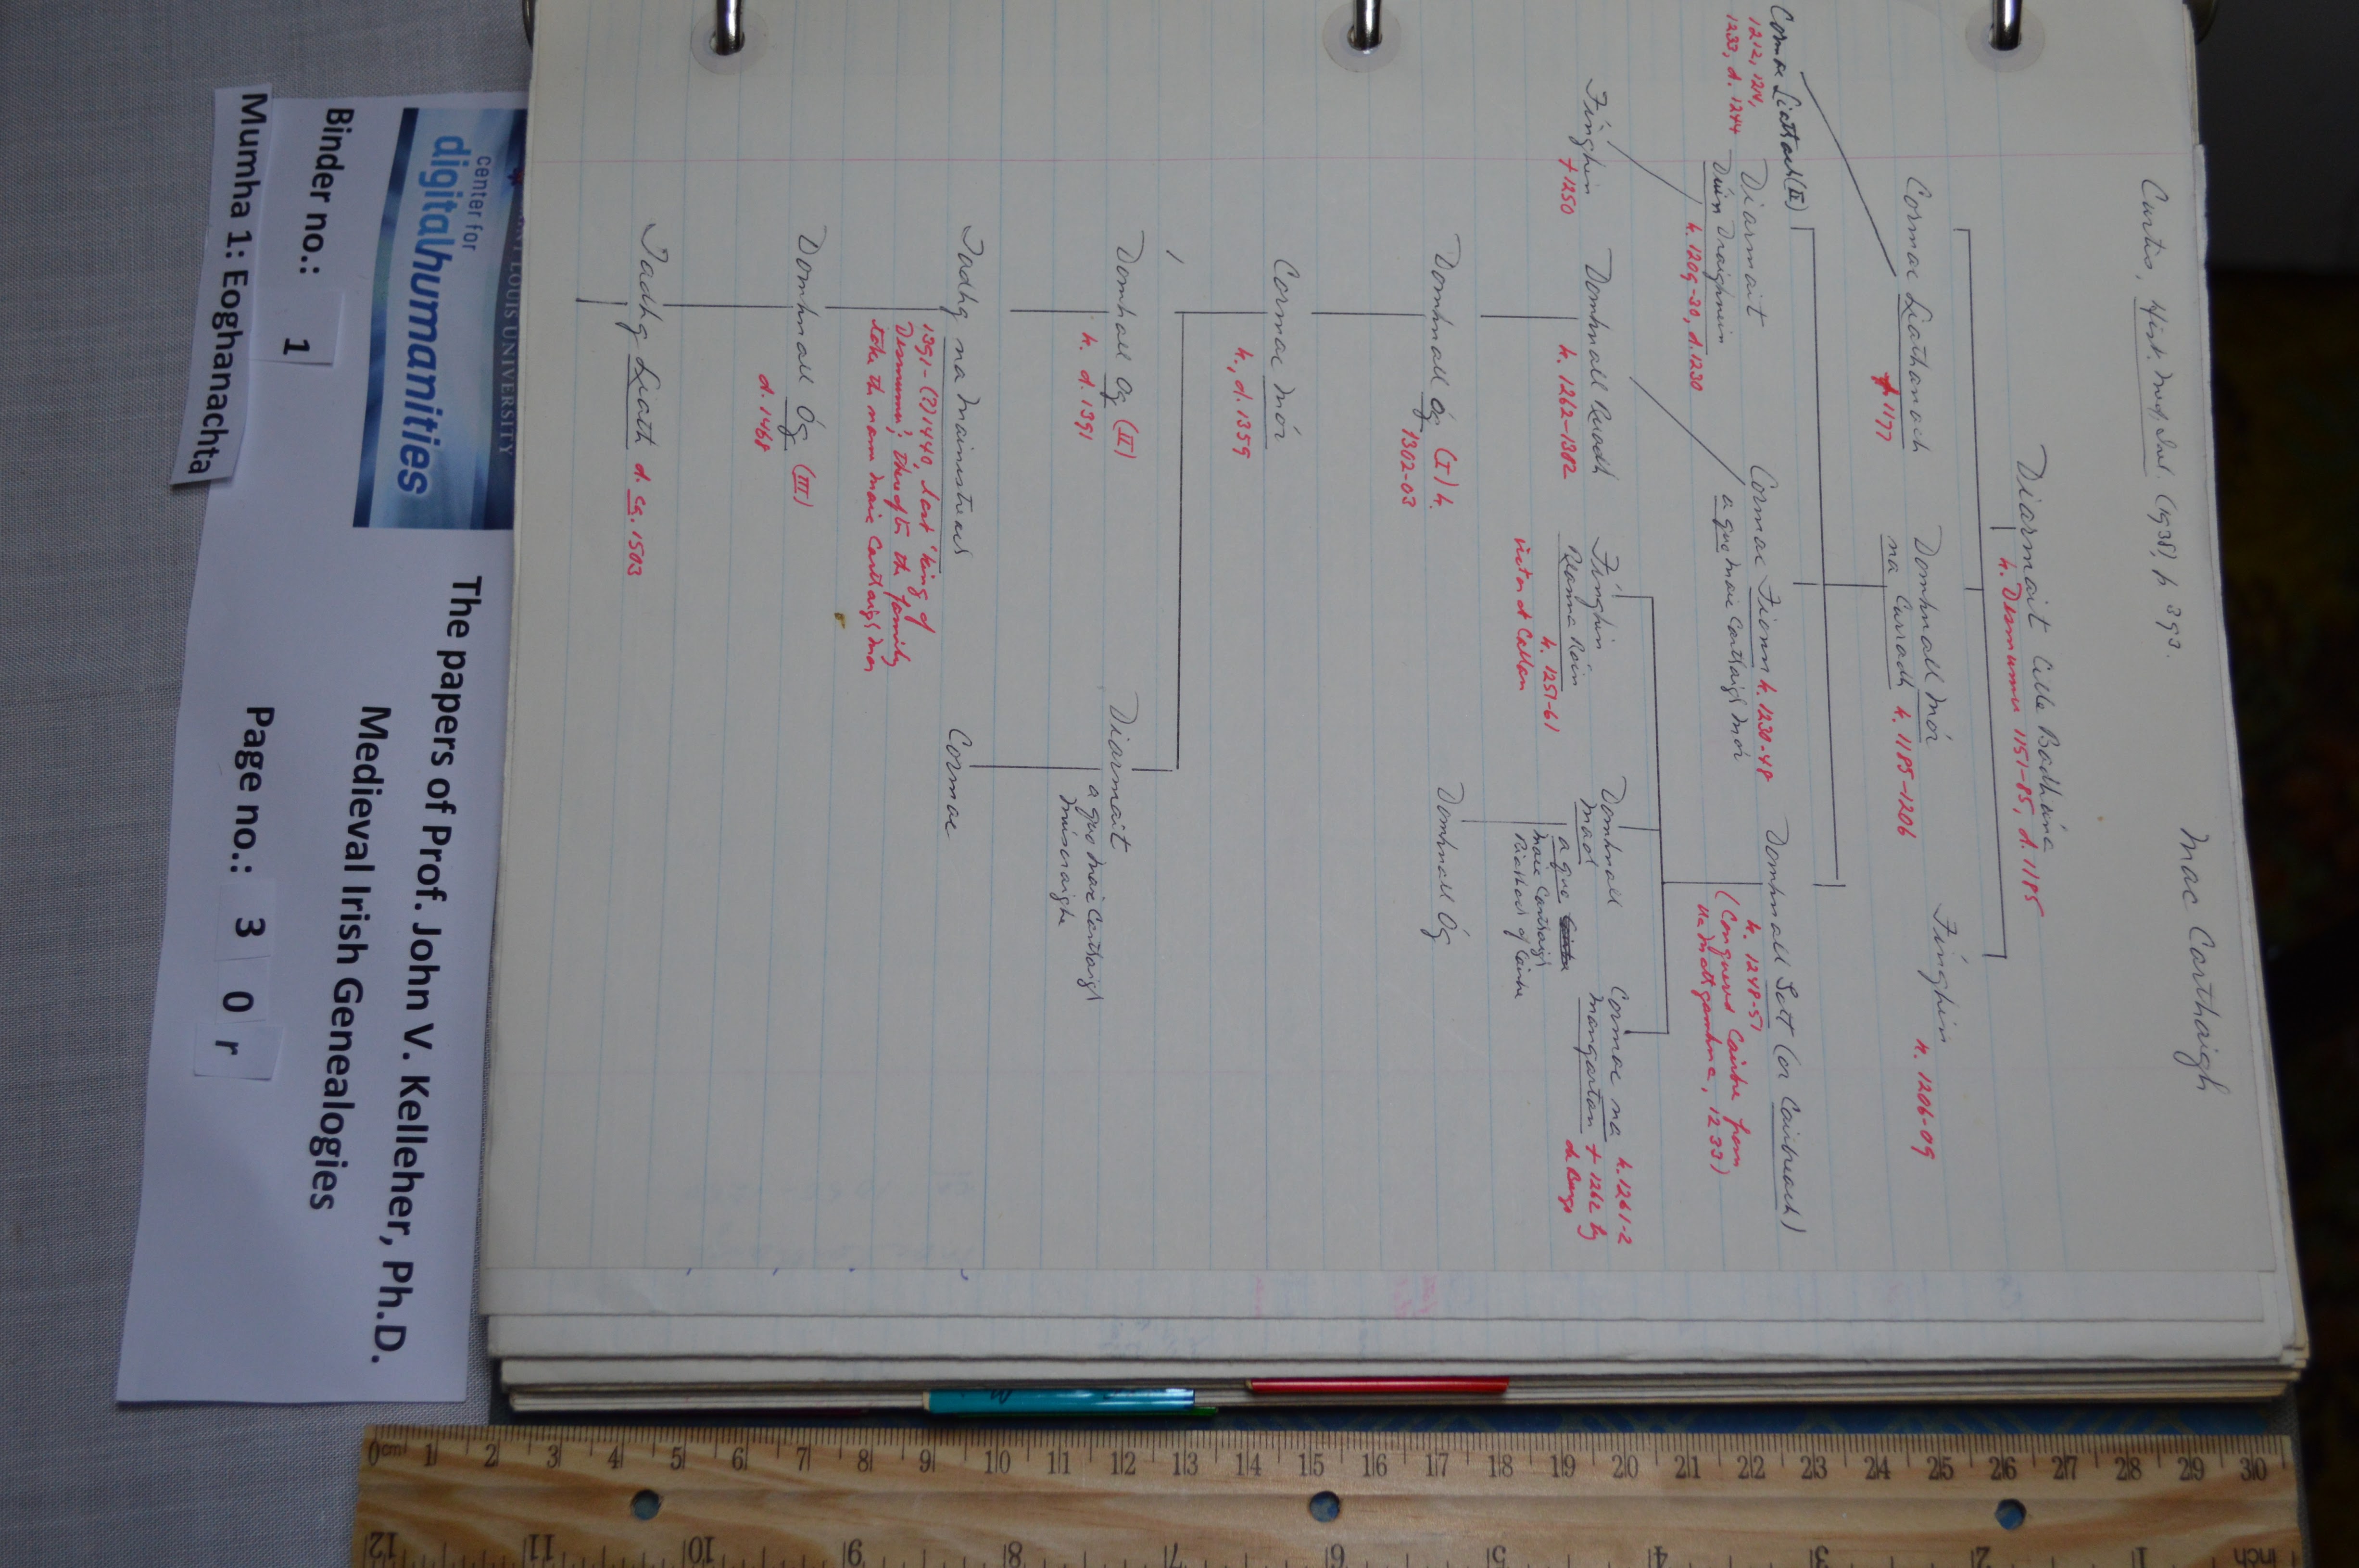 Mac Carthaigh
Curtis, Hist. Med. Irel. (1938), p. 393.
Diarmait Cille Badhúna
k. Desmumu 1151-85, d. 1185
Cormac Liathanach
† 1177
Domhnall Mór
na Curradh k. 1185-1206
Fínghin
k. 1206-09
Cormac Liathanach (II)
1212, 1214,
1233, d. 1244
Diarmait
Dúin Draighnein
k. 1209-30, d. 1230
Cormac Fionn k. 1230-48
a quo Maic Carthaigh Mór
Domhnall Gott (or Cairbreach)
k. 1248-51
(Conquered Cairbre from
Ua Mathgamhna, 1233)
Fínghin
† 1250
Domhnall Ruadh
k. 1262-1302
Fínghin
Reanna Róin
k. 1251-61
victor at Callan
Domhnall
Maol
a quo
Maic Carthaigh
Riabach of Cairbre
Cormac na
Mangartan
k. 1261-2
† 1262 by
de Burgo
Domhnall Óg (I) k.
1302-03
Domhnall Óg
Cormac Mór
k., d. 1359
Domhall Óg (II)
k. d. 1391
Diarmait
a quo Maic Carthaigh
Múscraighe
Tadhg na Mainistreach
1391-(?)1440, last 'king of
Desmumu'; thereafter the family
take the name Maic Carthaigh Mor
Cormac
Domhnall Óg (III)
d. 1468
Tadhg Liath d. ca. 1503
SAINT LOUIS UNIVERSITY
center for
digitalhumanities
The papers of Prof. John V. Kelleher, Ph.D.
Medieval Irish Genealogies
Binder no.: 1
Page no.: 3 0 r
Mumha 1: Eoghanachta
0 cm 1 2 3 4 5 6 7 8 9 10 11 12 13 14 15 16 17 18 19 20 21 22 23 24 25 26 27 28 29 30
12 11 10 9 8 7 6 5 4 3 2 1 inch